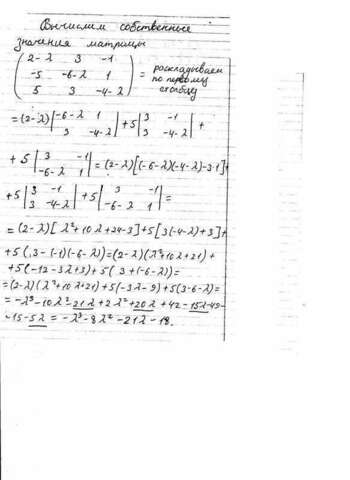 Вычислим собственные
значения матрицы
( 2-λ 3 -1
-5 -6-λ 1
5 3 -4-λ ) = раскладываем по первому столбцу
=(2-λ)|-6-λ 1
3 -4-λ| +5|3 -1
3 -4-λ| +
+ 5|3 -1
-6-λ 1| = (2-λ)[(-6-λ)(-4-λ)-3·1]+
+5|3 -1
3 -4-λ| +5|3 -1
-6-λ 1| =
= (2-λ)[λ²+10λ+24-3]+5[3(-4-λ)+3]+
+5(3-(-1)(-6-λ))=(2-λ)(λ²+10λ+21)+
+5(-12-3λ+3)+5(3+(-6-λ))=
=(2-λ)(λ²+10λ+21)+5(-3λ-9)+5(3-6-λ)=
= -λ³-10λ²-21λ+2λ²+20λ+42-15λ-45-
-15-5λ = -λ³-8λ²-21λ-18.